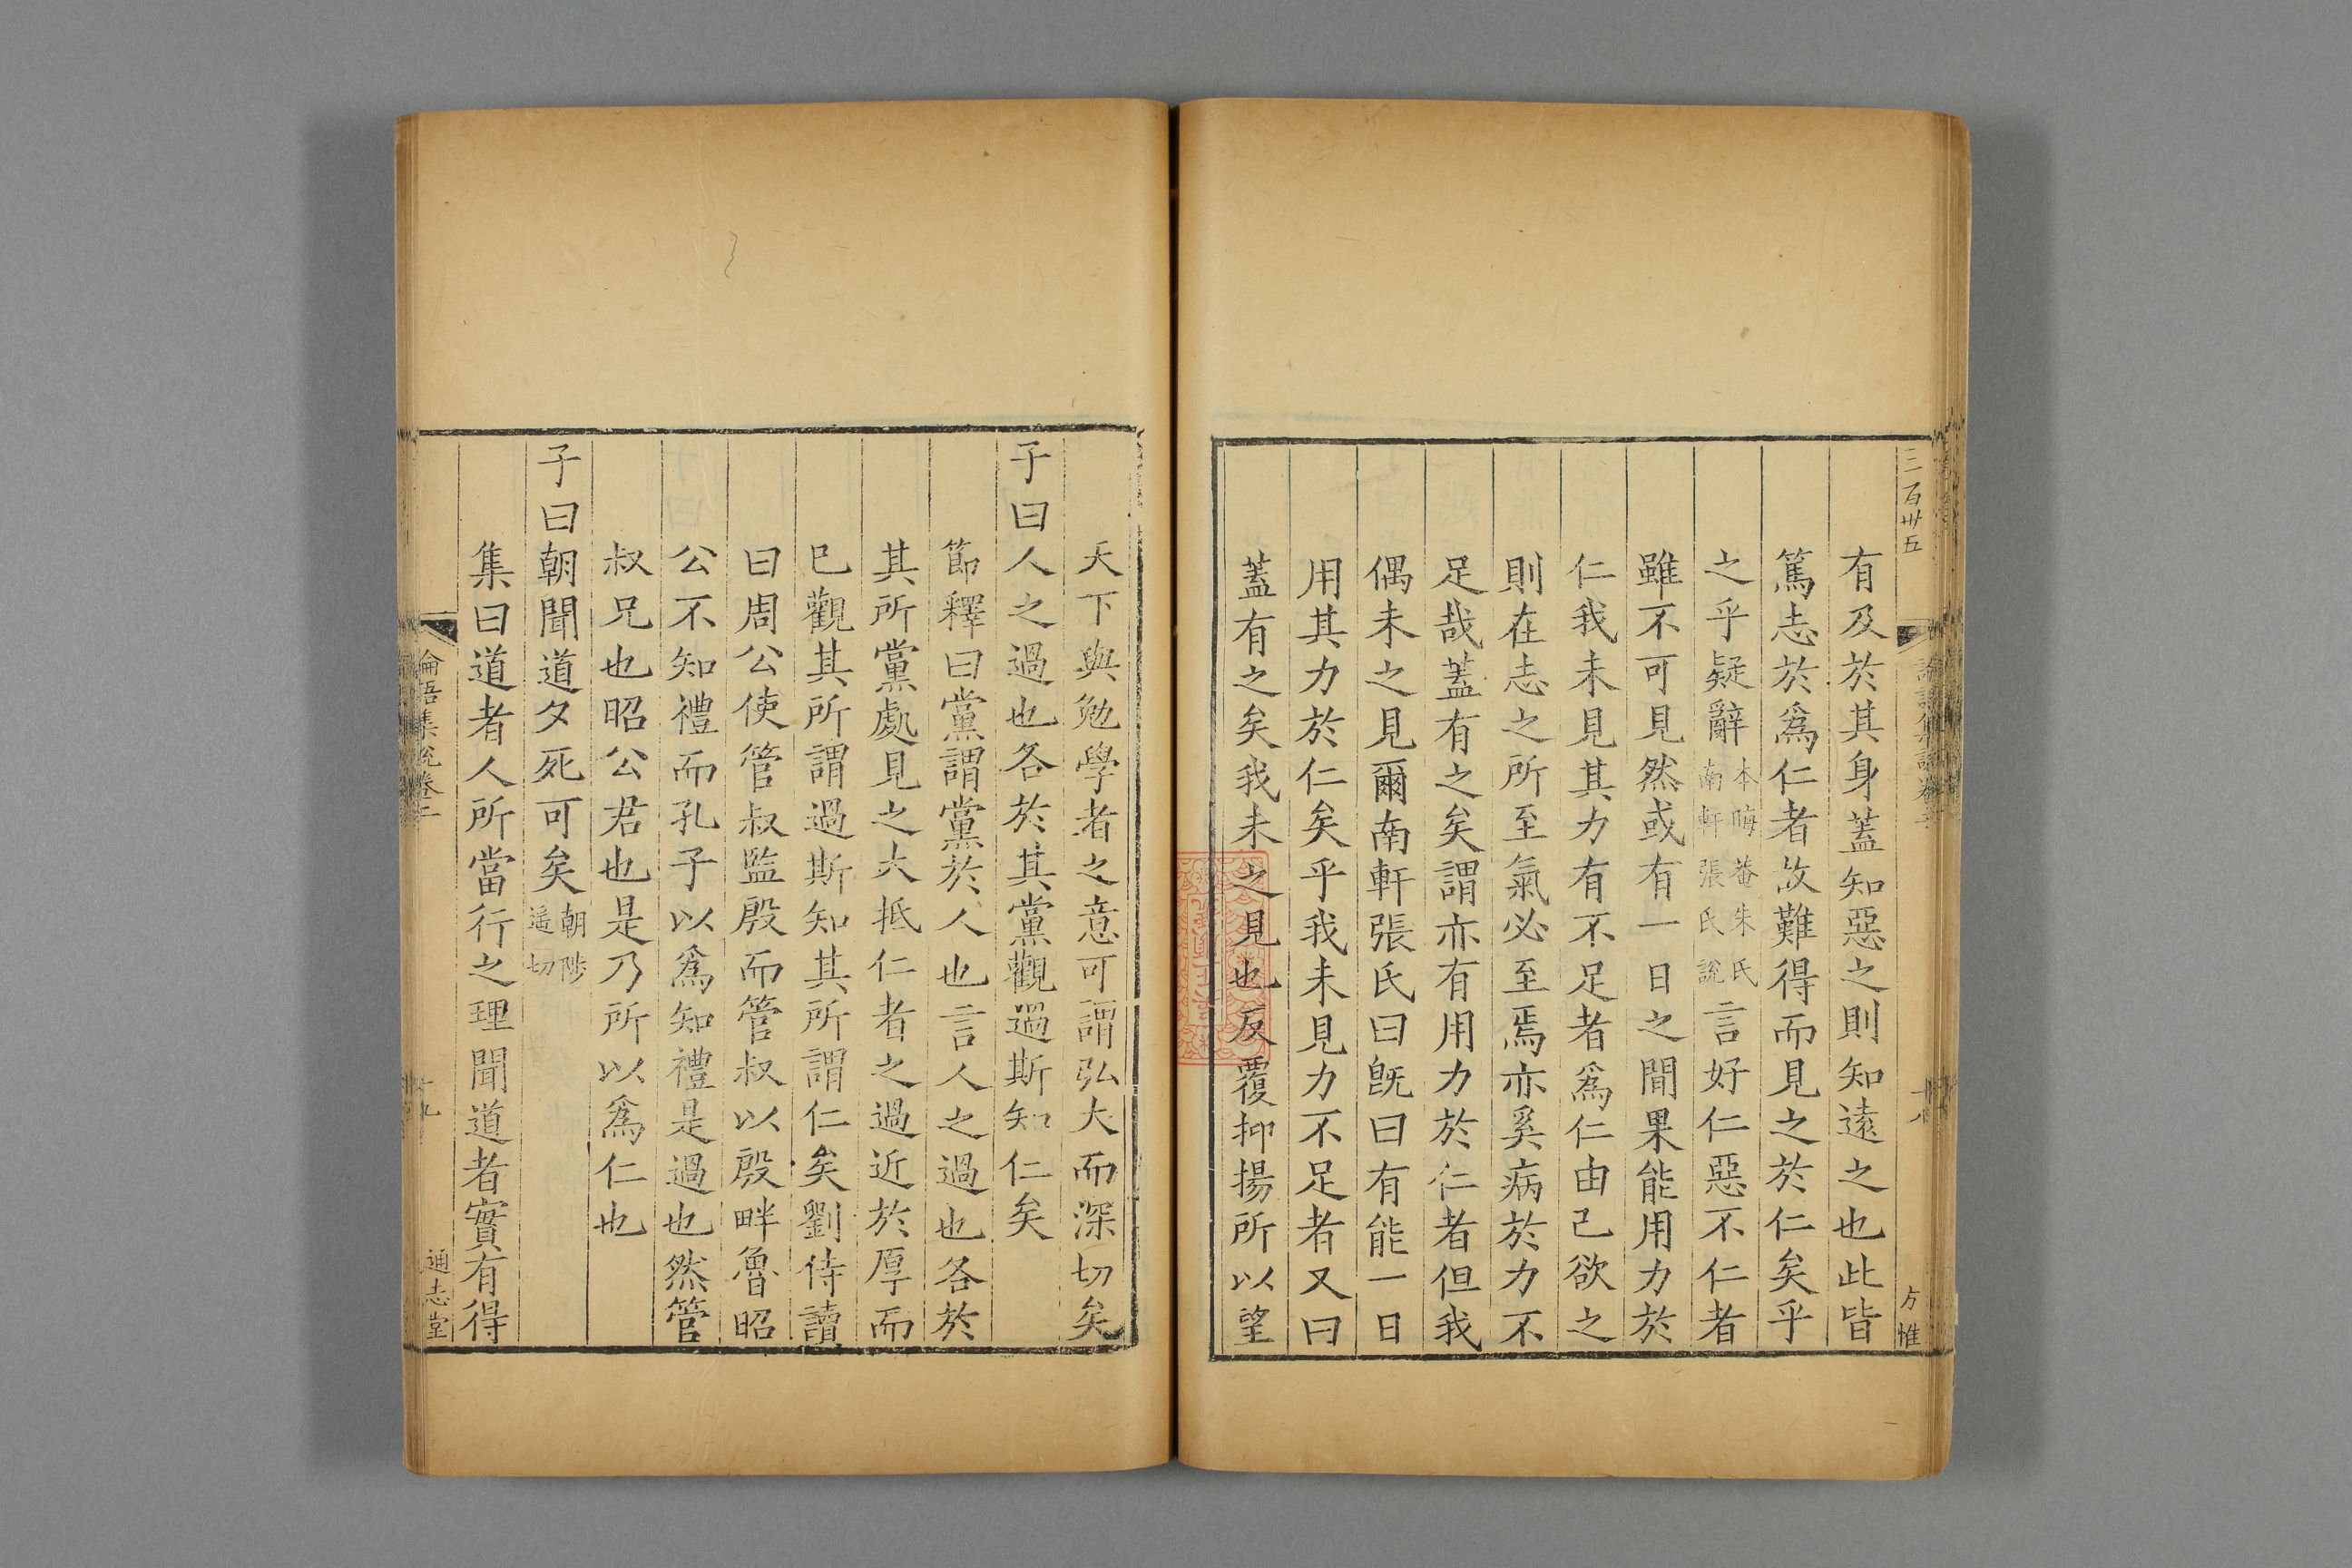 三百卅五
有及於其身蓋知惡之則知遠之也此皆
篤志於爲仁者故難得而見之於仁矣乎
之乎疑辭本晦菴朱氏南軒張氏說言好仁惡不仁者
雖不可見然或有一日之閒果能用力於
仁我未見其力有不足者爲仁由己欲之
則在志之所至氣必至焉亦奚病於力不
足哉蓋有之矣謂亦有用力於仁者但我
偶未之見爾南軒張氏曰旣曰有能一日
用其力於仁矣乎我未見力不足者又曰
蓋有之矣我未之見也反覆抑揚所以望
天下與勉學者之意可謂弘大而深切矣
子曰人之過也各於其黨觀過斯知仁矣
節釋曰黨謂黨於人也言人之過也各於
其所黨處見之大抵仁者之過近於厚而
已觀其所謂過斯知其所謂仁矣劉侍讀
曰周公使管叔監殷而管叔以殷畔魯昭
公不知禮而孔子以爲知禮是過也然管
叔兄也昭公君也是乃所以爲仁也
子曰朝聞道夕死可矣朝陟遥切
集曰道者人所當行之理聞道者實有得
論語集說卷二
十九
通志堂